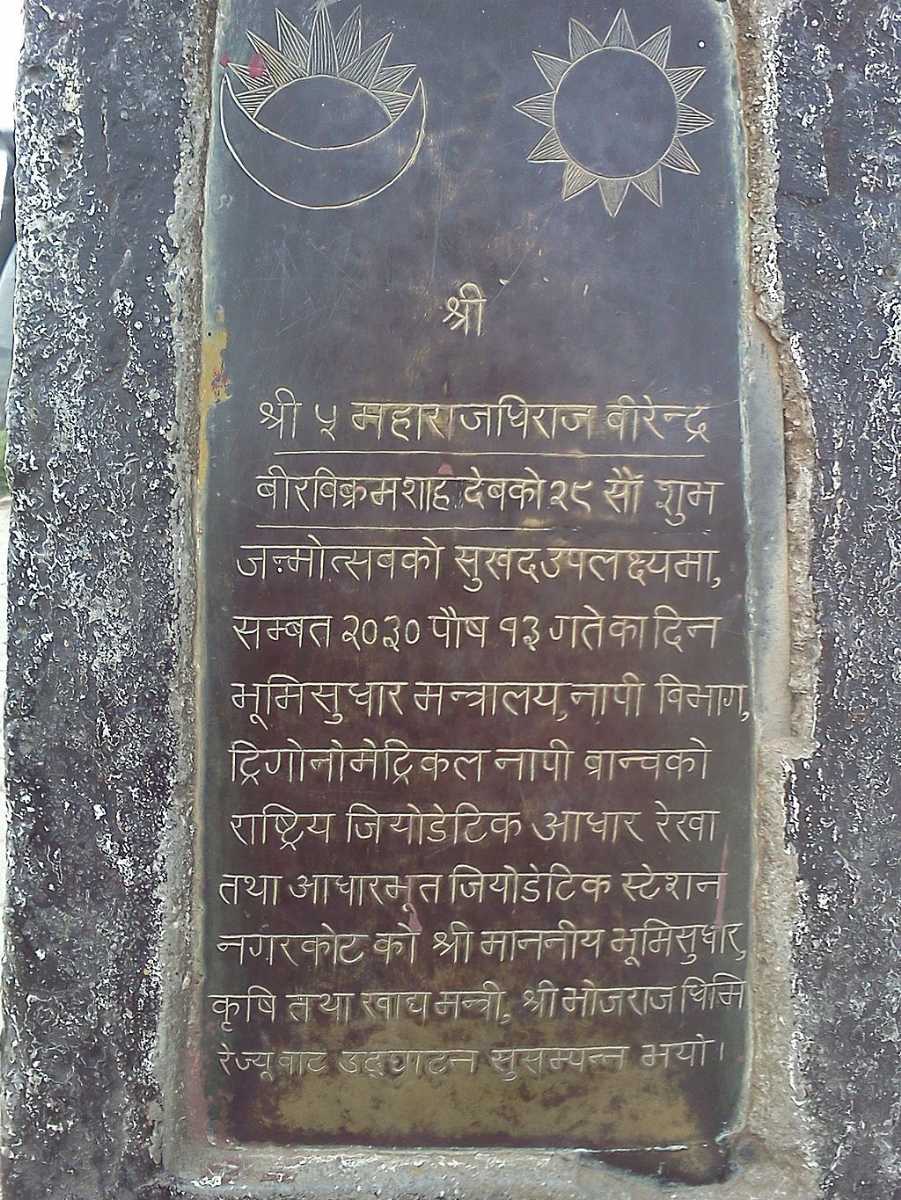 श्री
श्री ५ महाराजधिराज वीरेन्द्र
बीरविक्रमशाह देबको २९ सौं शुभ
जन्मोत्सबको सुखद उपलक्ष्यमा,
सम्बत २०३० पौष १३ गतेका दिन
भूमिसुधार मन्त्रालय, नापी विभाग,
ट्रिगोनोमेट्रिकल नापी ब्रान्चको
राष्ट्रिय जियोडेटिक आधार रेखा
तथा आधारभूत जियोडेटिक स्टेशन
नगरकोट को श्री माननीय भूमिसुधार,
कृषि तथा खाद्य मन्त्री, श्री भोजराज घिमि
रेज्यू बाट उद्घाटन सुसम्पन्न भयो।